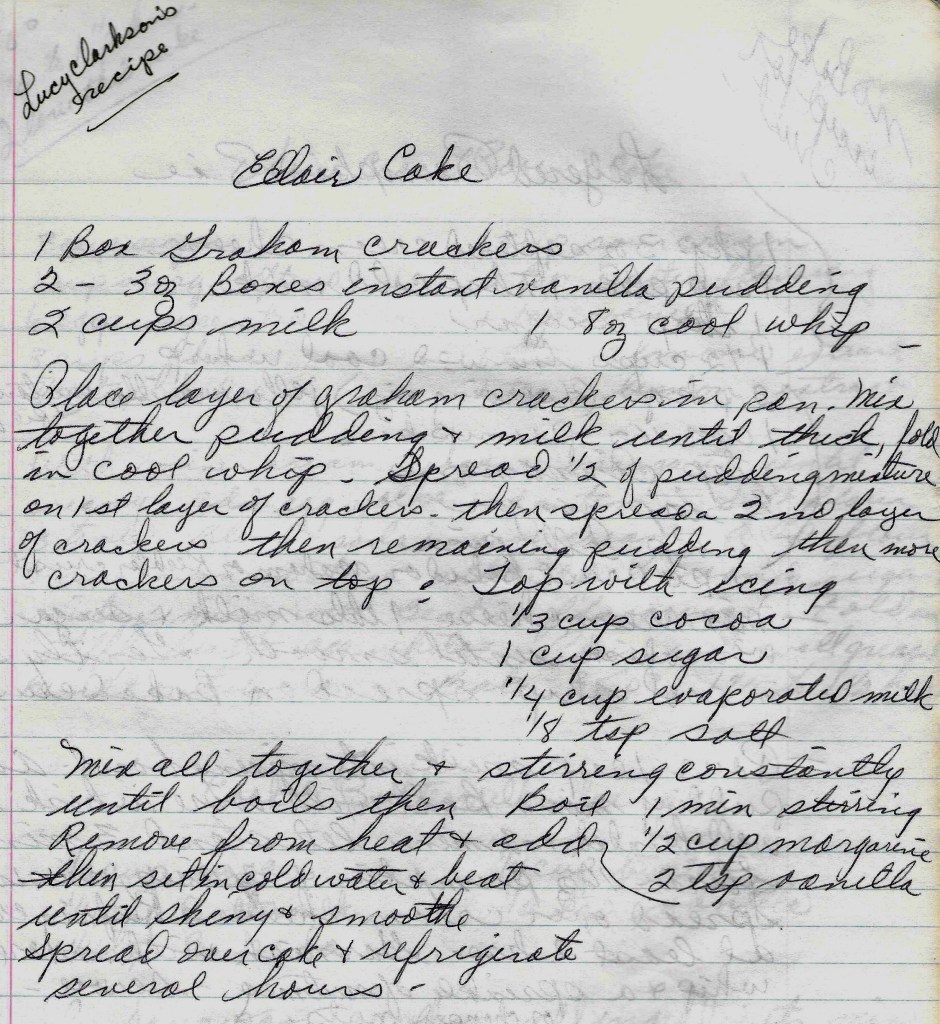 Lucy Clarkson's
recipe
Eclair Cake
1 Box Graham crackers
2 - 3 oz Boxes instant vanilla pudding
2 cups milk 1 8 oz cool whip
Place layer of graham crackers in pan. Mix
together pudding & milk until thick, fold
in cool whip - Spread 1/2 of pudding mixture
on 1st layer of crackers - then spread a 2nd layer
of crackers then remaining pudding then more
crackers on top. Top with icing
1/3 cup cocoa
1 cup sugar
1/4 cup evaporated milk
1/8 tsp salt
Mix all together & stirring constantly
until boils then Boil 1 min stirring
Remove from heat & add 1/2 cup margarine
then set in cold water & beat 2 tsp vanilla
until shiny & smoothe
Spread over cake & refrigerate
several hours -